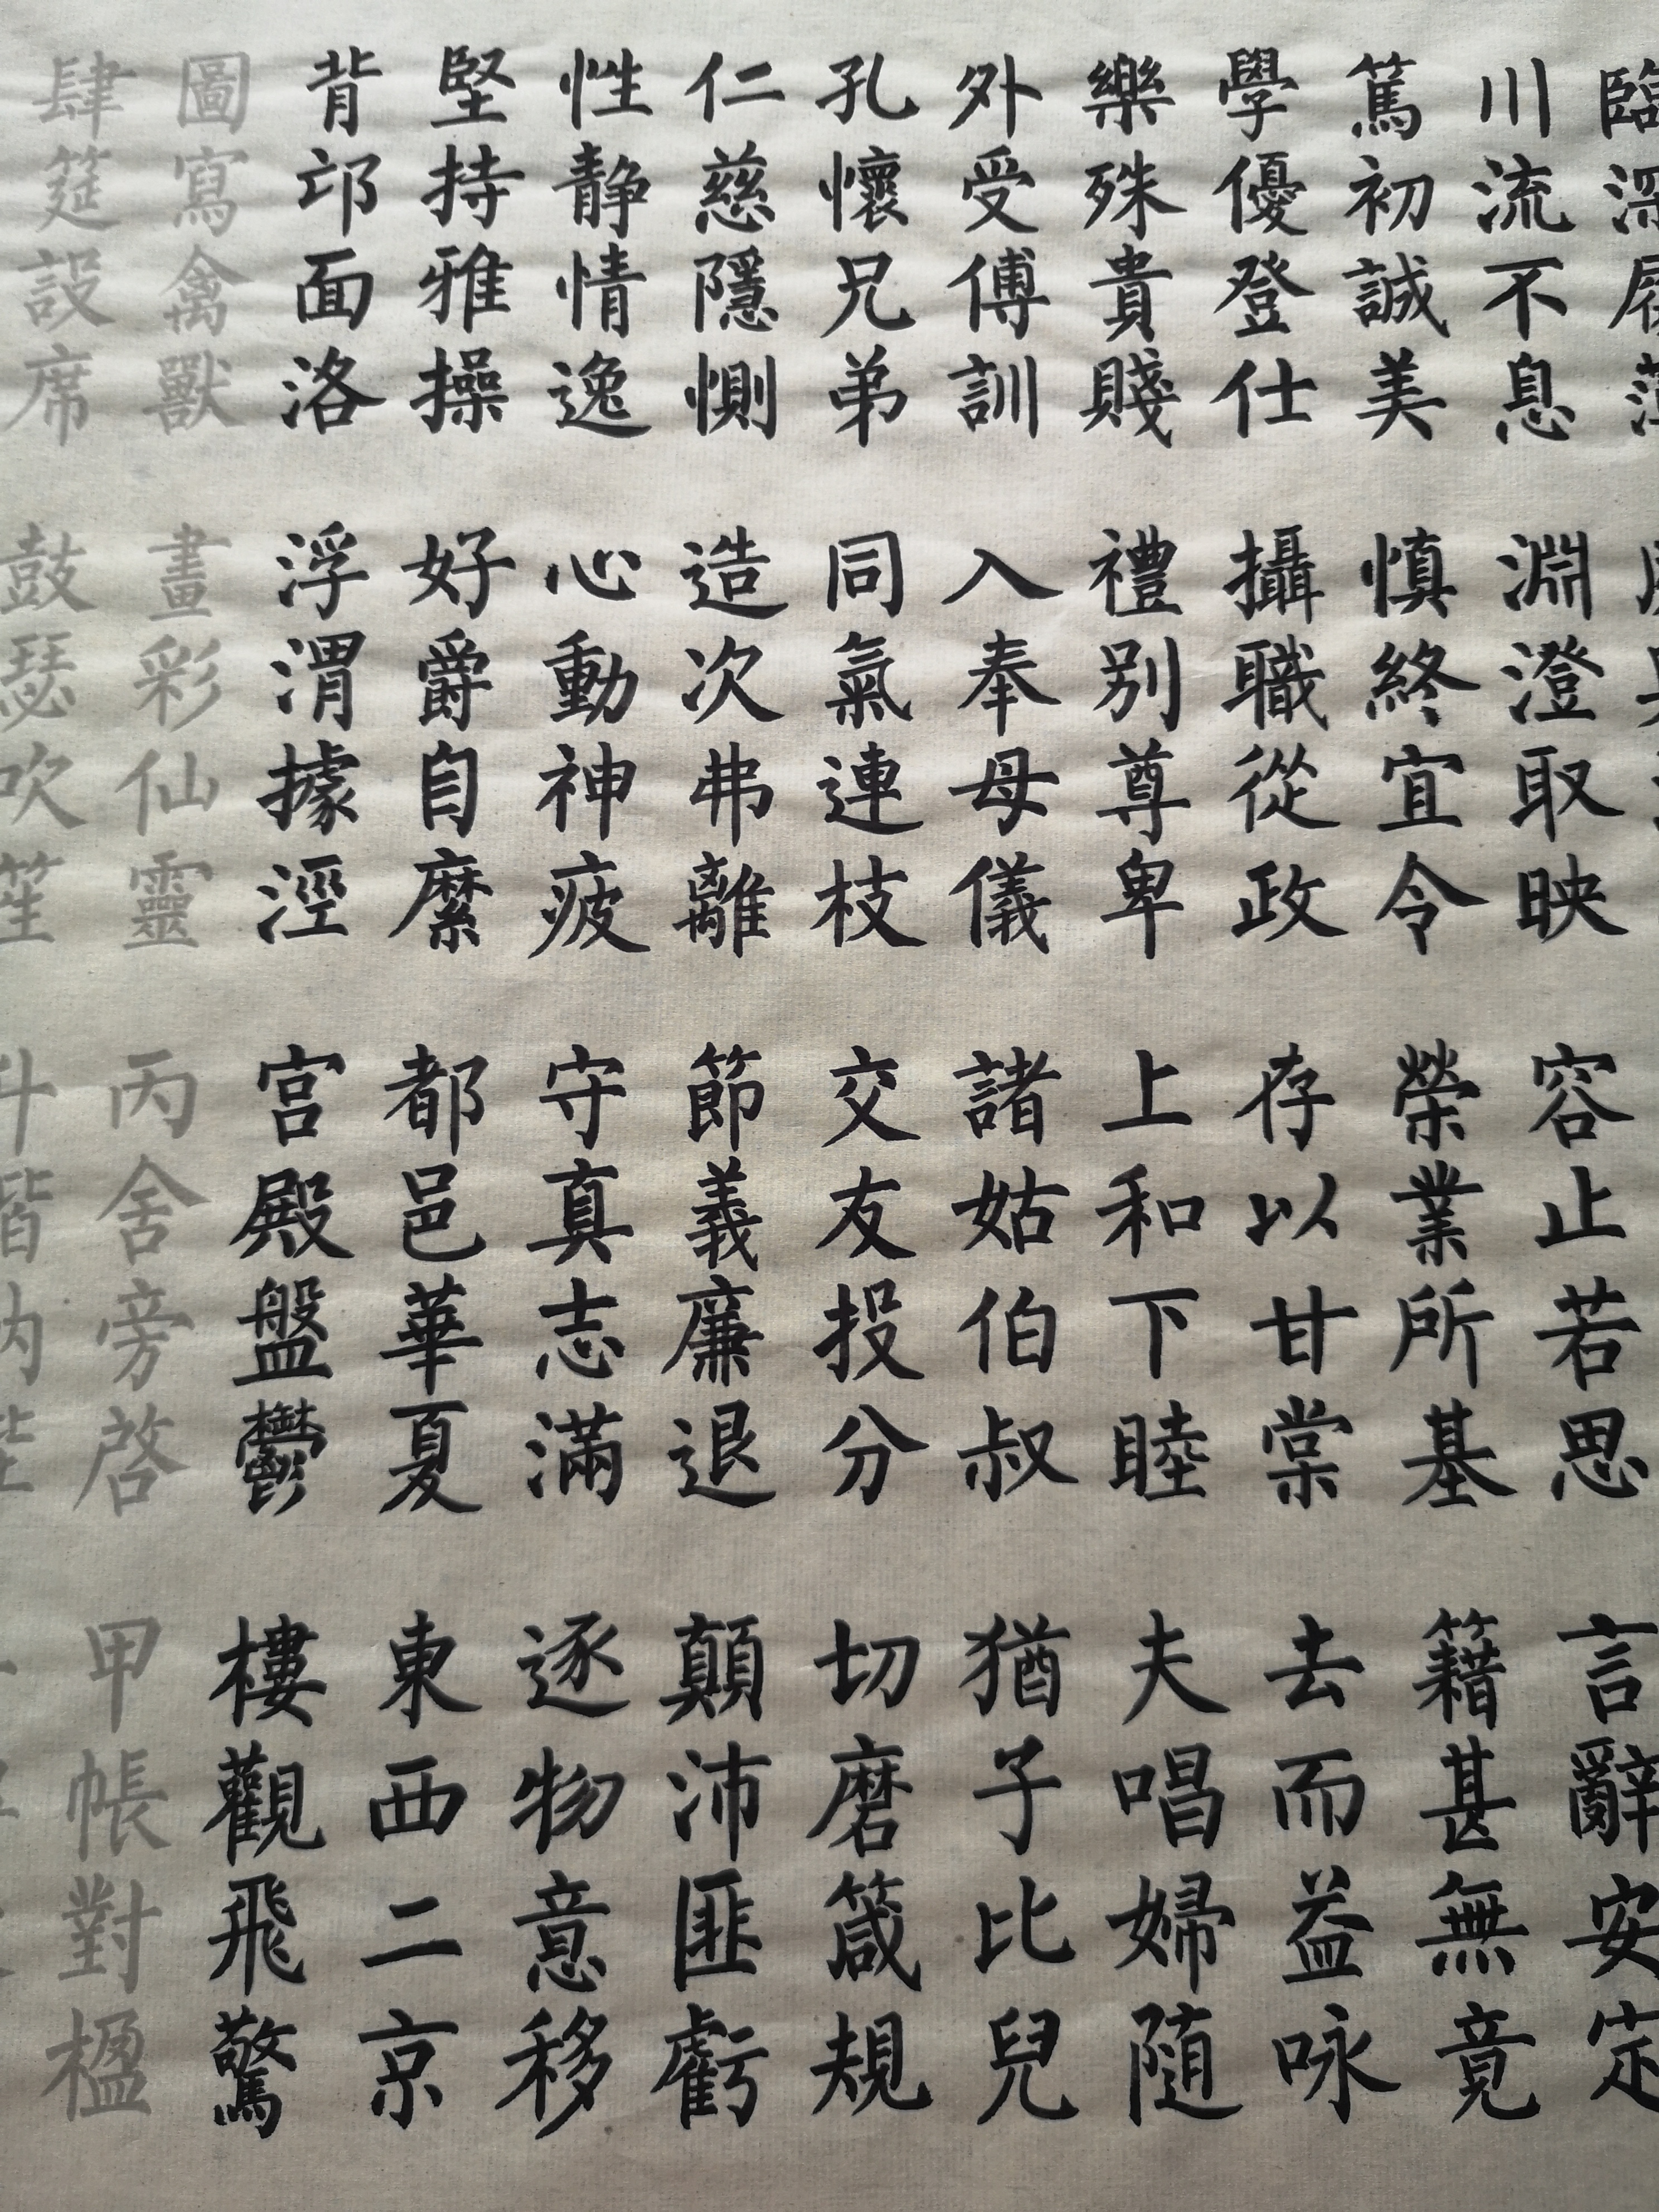 臨深履薄
川流不息 淵澄取映 容止若思 言辭安定
篤初誠美 慎終宜令 榮業所基 籍甚無竟
學優登仕 攝職從政 存以甘棠 去而益咏
樂殊貴賤 禮别尊卑 上和下睦 夫唱婦随
外受傅訓 入奉母儀 諸姑伯叔 猶子比兒
孔懷兄弟 同氣連枝 交友投分 切磨箴規
仁慈隱惻 造次弗離 節義廉退 顛沛匪虧
性静情逸 心動神疲 守真志滿 逐物意移
堅持雅操 好爵自縻 都邑華夏 東西二京
背邙面洛 浮渭據涇 宮殿盤鬱 樓觀飛驚
圖寫禽獸 畫彩仙靈 丙舍旁啓 甲帳對楹
肆筵設席 鼓瑟吹笙 升階納陛